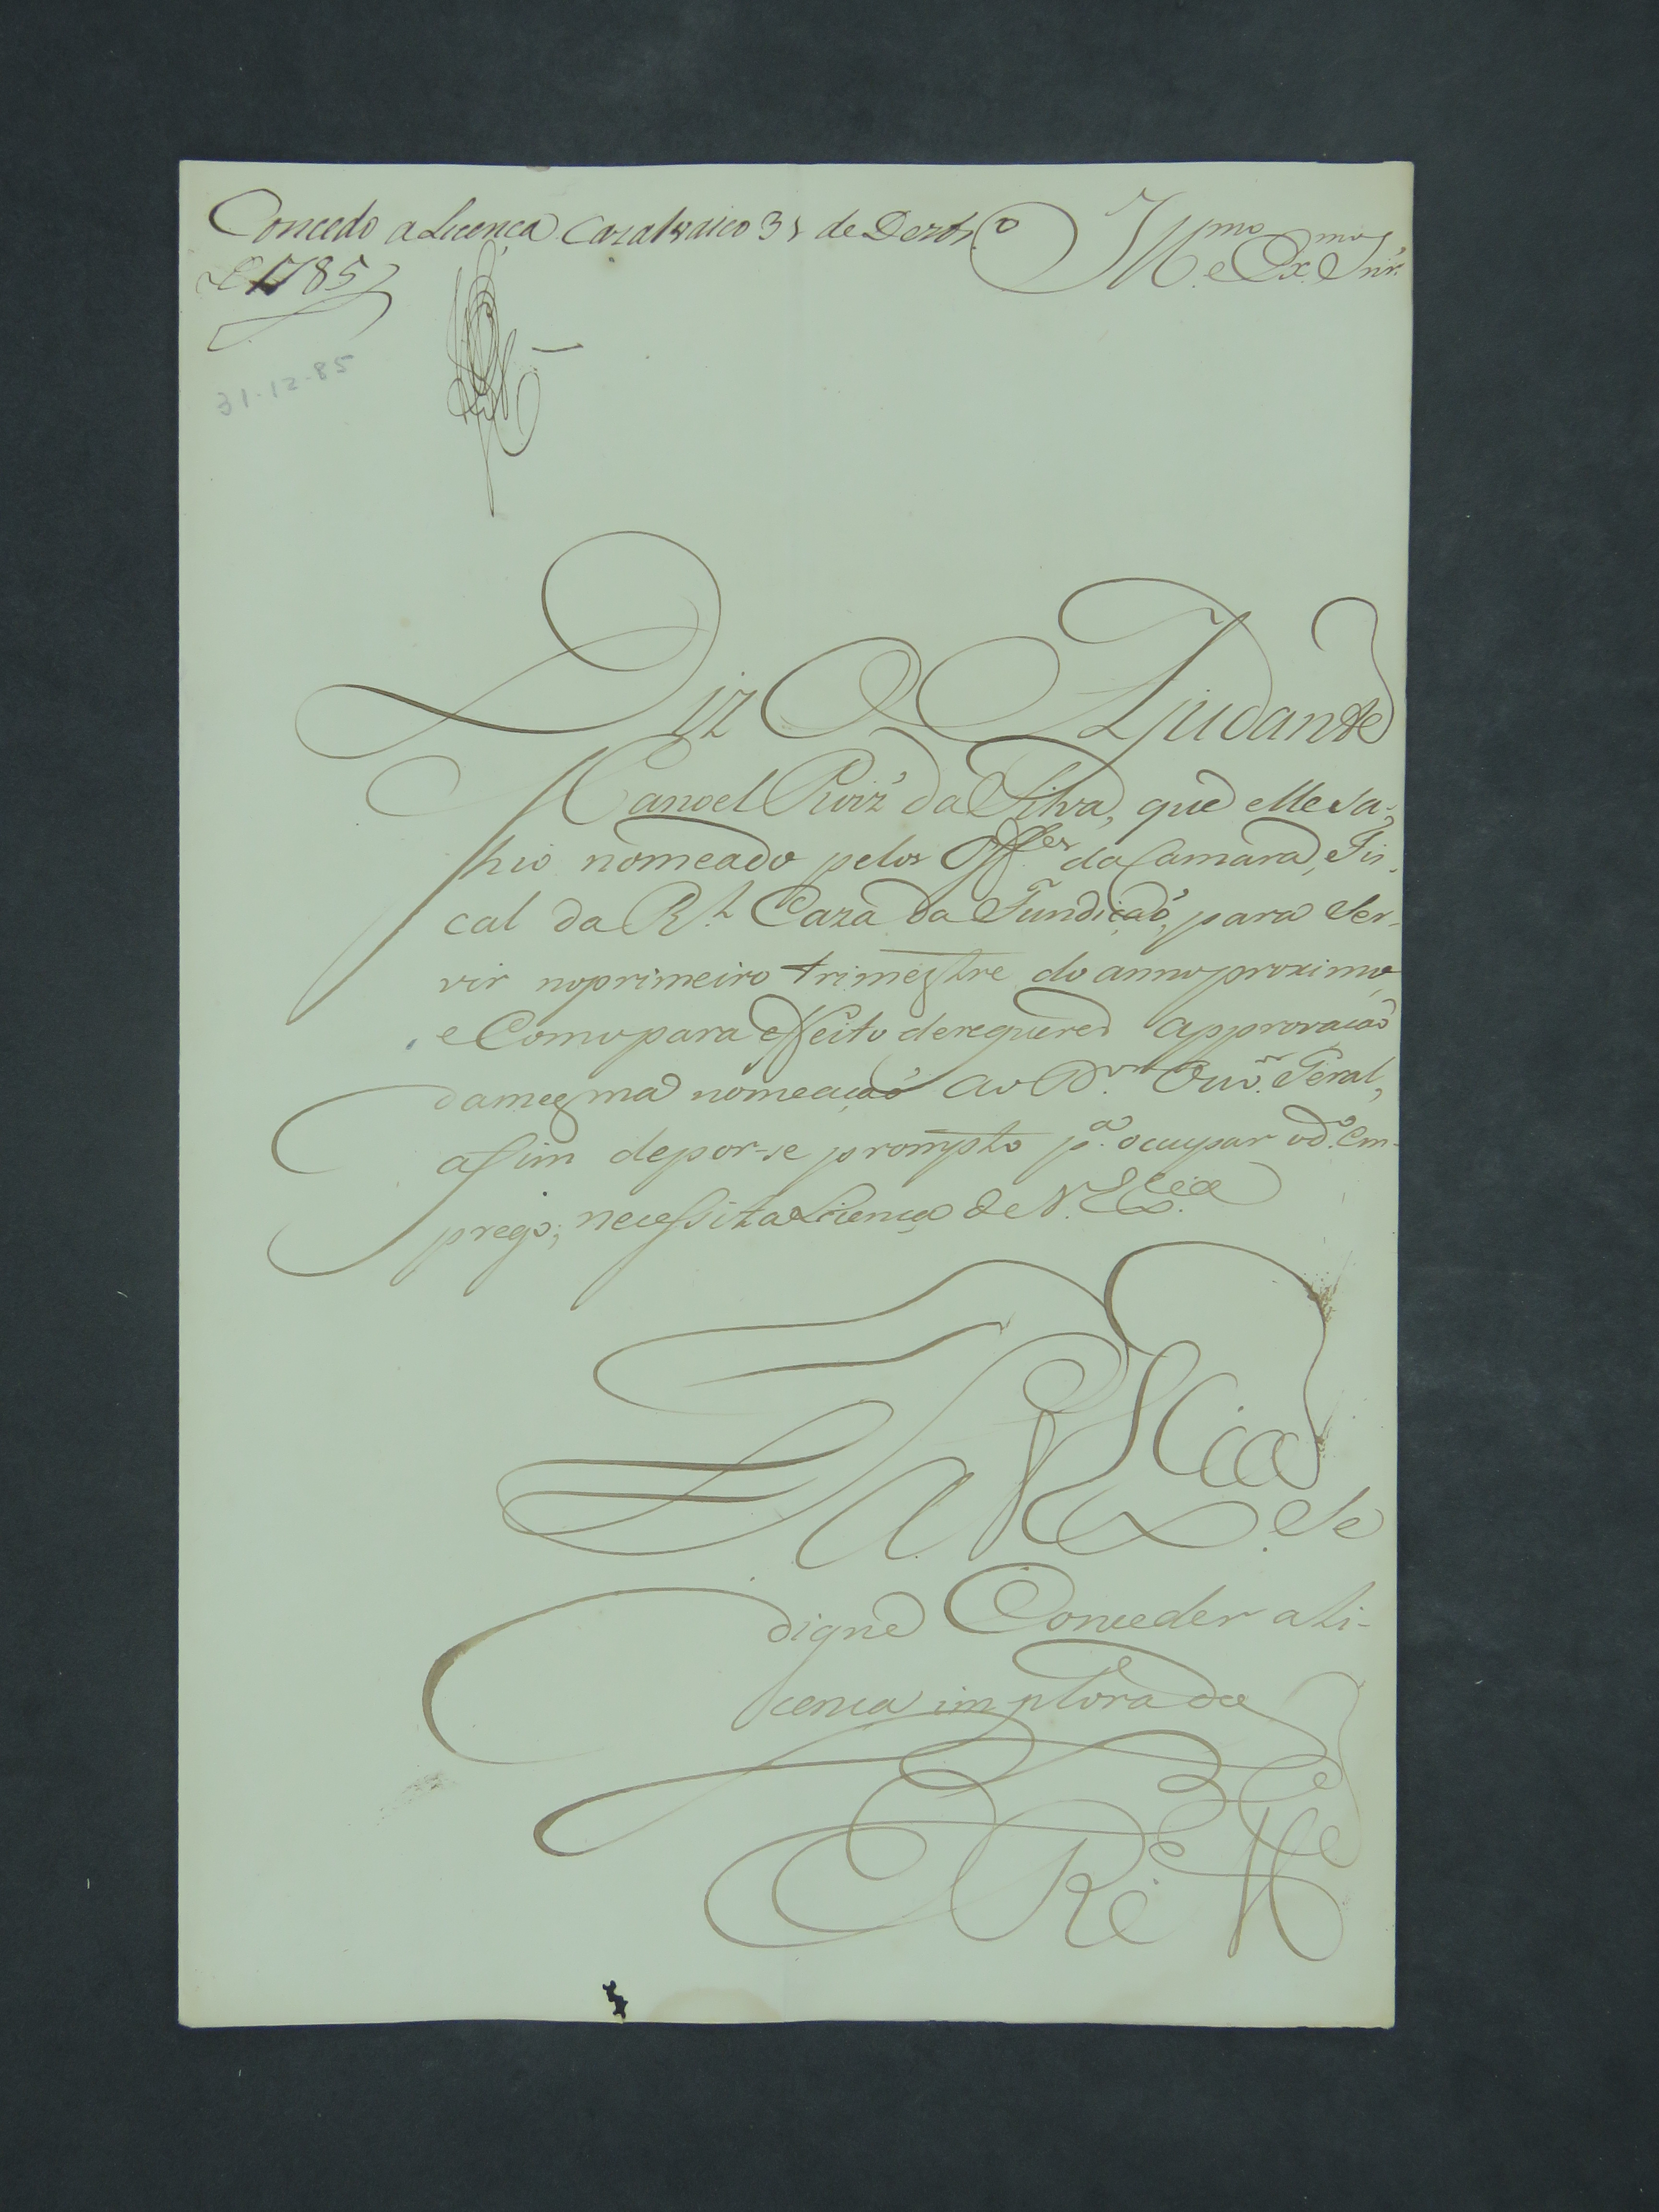 Concedo a Licença. Caza 31 de Dezbro
de 1785
31-12-85
Illmo. e Exmo. Snr.
Diz O Ajudante
Manoel Roiz' da Silva, que elle sa-
hio nomeado pelos Offes. da Camara, Fis-
cal da Rl. Caza da Fundiçaõ, para Ser-
vir no primeiro trimestre do anno proximo,
e Como para effeito de requerer approvaçaõ
da mesma nomeaçaõ ao Dor. Ouvor. Geral,
assim de por-se prompto pa. ocupar o do. Em-
prego; necessita Licença de V. Excia.
P. a V. Excia. Se
digne Conceder a Li-
cença implorada
E R Mce